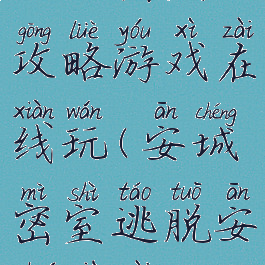 gōng lüè yóu xì zài
攻略游戏在
xiàn wán ān chéng
线玩(安城
mì shì táo tuō ān
密室逃脱安